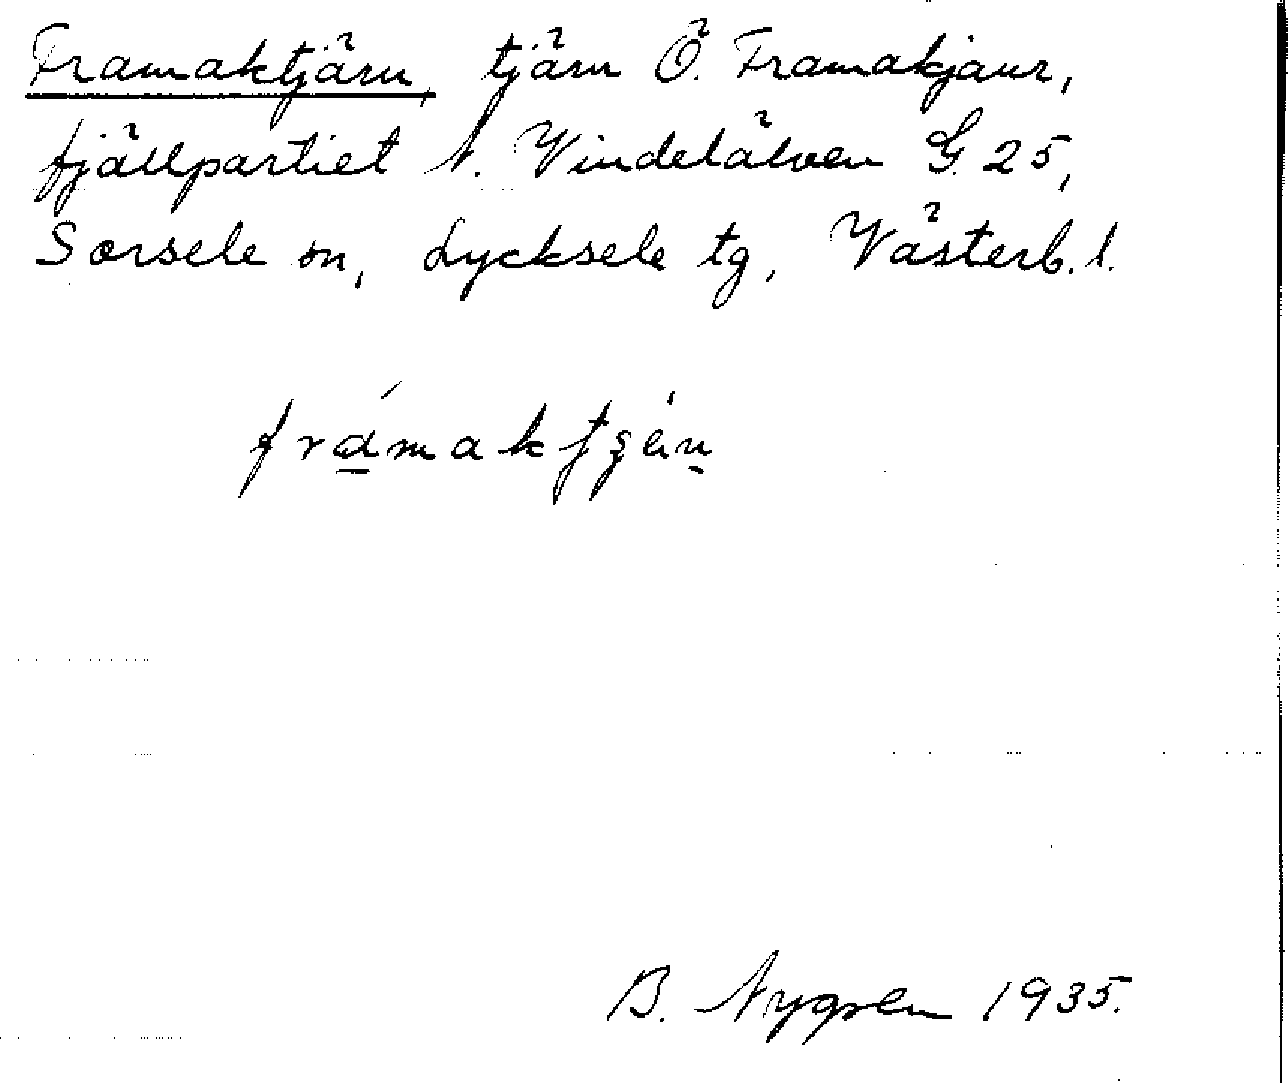 Framaktjärn, tjärn Ö. Framakjaur,
fjällpartiet N. Vindelälven G. 25,
Sorsele sn, Lycksele tg, Västerb. l.
B. Nygren 1935.